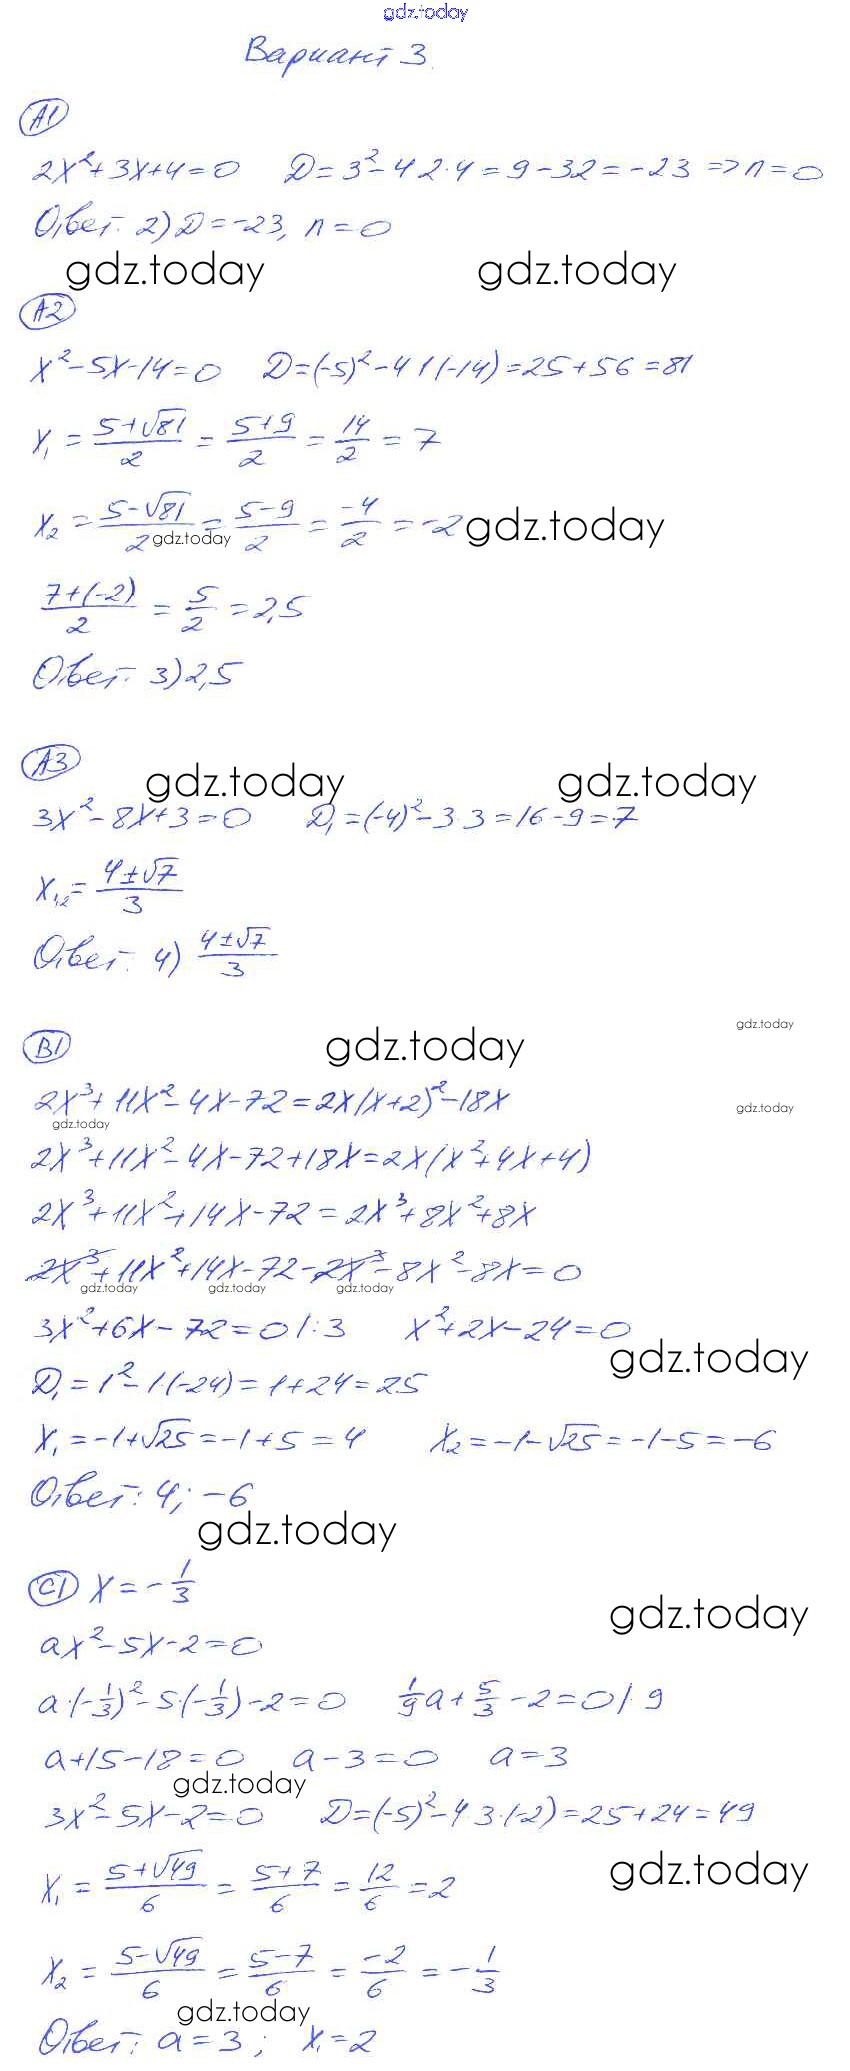 gdz.today
Вариант 3.
A1
2x²+3x+4=0 D=3²-4·2·4=9-32=-23 => n=0
Ответ: 2) D=-23, n=0
gdz.today gdz.today
A2
x²-5x-14=0 D=(-5)²-4·1·(-14)=25+56=81
x₁=(5+√81)/2=(5+9)/2=14/2=7
x₂=(5-√81)/2=(5-9)/2=-4/2=-2 gdz.today
gdz.today
(7+(-2))/2=5/2=2,5
Ответ: 3) 2,5
A3
gdz.today gdz.today
3x²-8x+3=0 D₁=(-4)²-3·3=16-9=7
x₁,₂=(4±√7)/3
Ответ: 4) (4±√7)/3
gdz.today
B1 gdz.today
2x³+11x²-4x-72=2x(x+2)²-18x gdz.today
gdz.today
2x³+11x²-4x-72+18x=2x(x²+4x+4)
2x³+11x²+14x-72=2x³+8x²+8x
2x³+11x²+14x-72-2x³-8x²-8x=0
gdz.today gdz.today gdz.today
3x²+6x-72=0 |:3 x²+2x-24=0
gdz.today
D₁=1²-1·(-24)=1+24=25
x₁=-1+√25=-1+5=4 x₂=-1-√25=-1-5=-6
Ответ: 4; -6
gdz.today
C1 x=-1/3
gdz.today
ax²-5x-2=0
a·(-1/3)²-5·(-1/3)-2=0 1/9a+5/3-2=0 |·9
a+15-18=0 a-3=0 a=3
gdz.today
3x²-5x-2=0 D=(-5)²-4·3·(-2)=25+24=49
gdz.today
x₁=(5+√49)/6=(5+7)/6=12/6=2
x₂=(5-√49)/6=(5-7)/6=-2/6=-1/3
gdz.today
Ответ: a=3; x₁=2